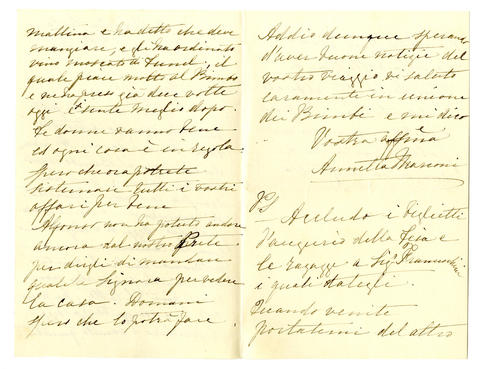 mattina e ha detto che deve
mangiare, e gli ha ordinato
vino moscato di , il
quale piace molto al Bimbo
e ne ha preso già dieci volte
oggi E sente meglio dopo.
Le donne vanno bene
ed ogni cosa è in regola.
spero che ora potrete
sistemare tutti i vostri
affari per bene
Alfonso non ha potuto andare
ancora dal nostro Prete
per dirgli di mandare
quale la Signora per vedere
la casa. Domani
spero che lo potrà fare.
Addio dunque sperando
d'aver buone notizie del
vostro viaggio vi saluto
caramente in unione
dei Bimbi e mi dico
Vostra affma
Annetta Marconi
PS Accludo i biglietti
d'augurio della e
le ragazze a Sig.
i quali dategli.
Quando venite
portatemi del altro